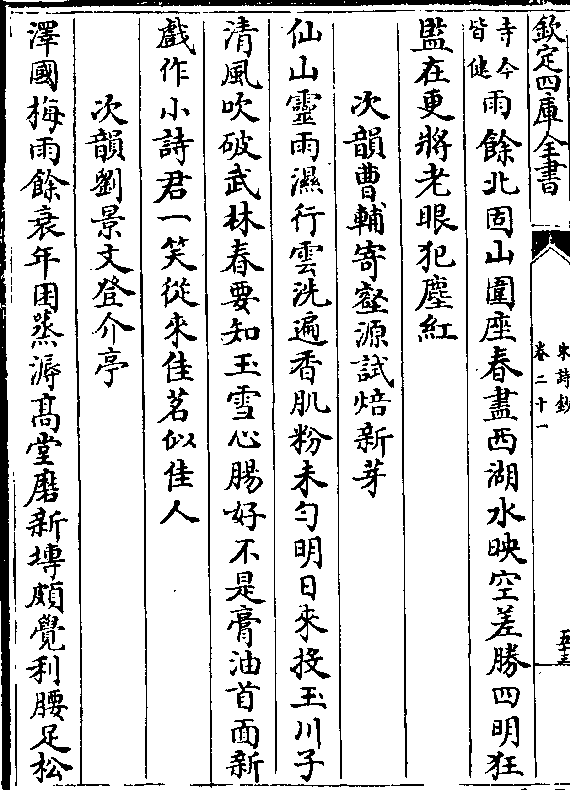 欽定四庫全書
宋詩鈔
卷二十一
寺今
皆健
雨餘北固山圍座春盡西湖水映空差勝四明狂
監在更將老眼犯塵紅
次韻曹輔寄壑源試焙新芽
仙山靈雨濕行雲洗遍香肌粉未勻明日來投玉川子
清風吹破武林春要知玉雪心腸好不是膏油首面新
戲作小詩君一笑從來佳茗似佳人
次韻劉景文登介亭
澤國梅雨餘衰年困蒸溽髙堂磨新塼頗覺利腰足松